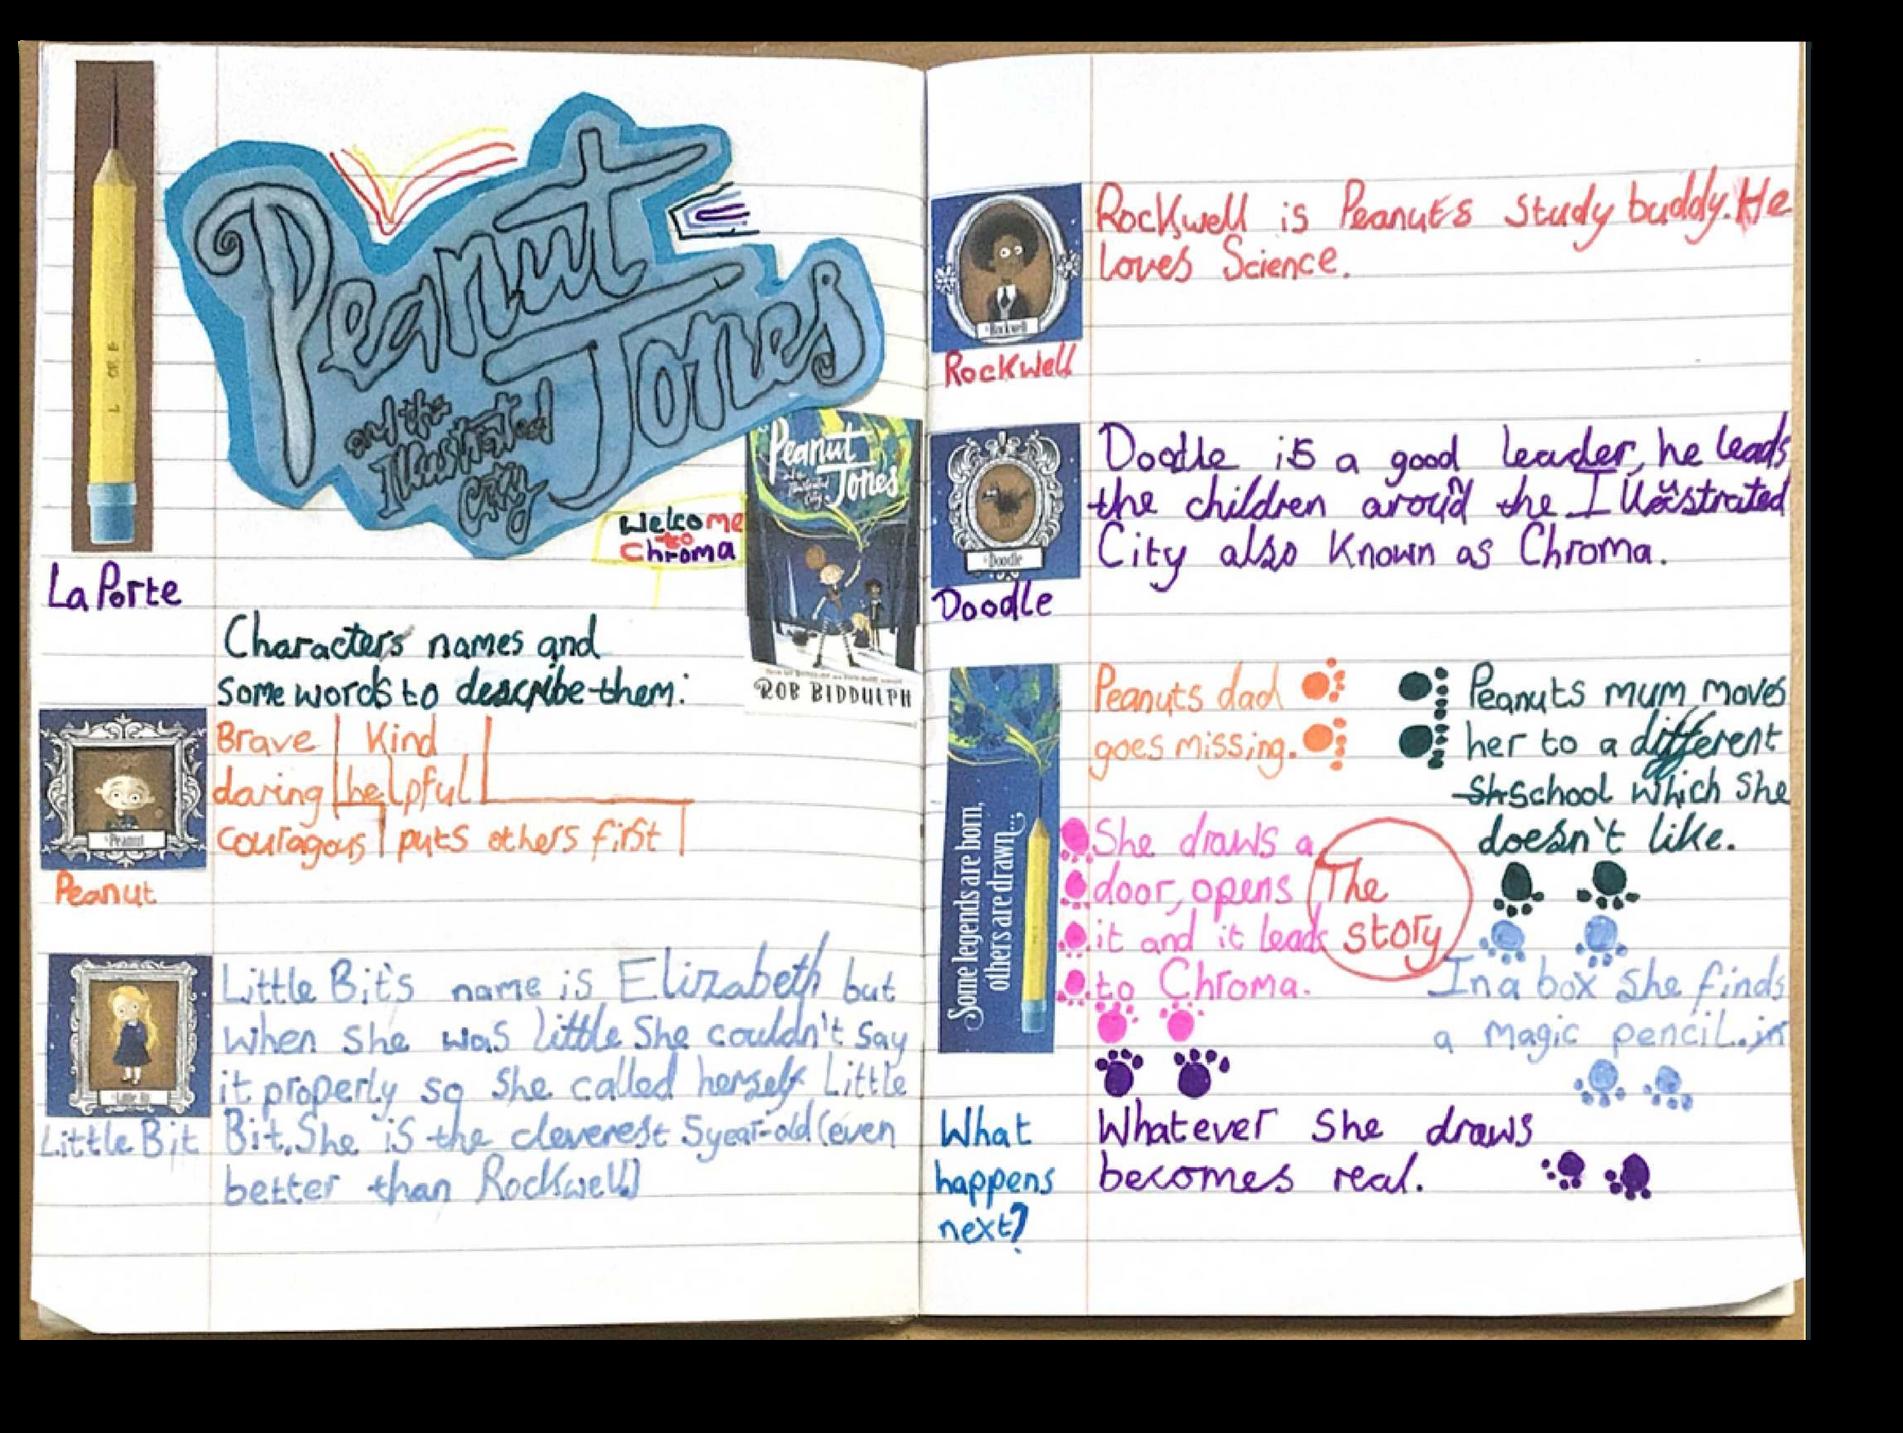 Peanut
Jones
and the
Illustrated
City
Peanut
and the
Illustrated
City
Jones
ROB BIDDULPH
Welcome
to
Chroma
La Porte
Characters names and
some words to describe them:
Peanut
Peanut
Brave Kind
daring helpful
couragous puts others first
Little Bit
Little Bit
Little Bit's name is Elizabeth but
when she was little She couldn't say
it properly so she called herself Little
Bit. She is the cleverest 5year-old (even
better than Rockwell)
Rockwell
Rockwell
Rockwell is Peanuts study buddy. He
loves Science.
Doodle
Doodle
Doodle is a good leader, he leads
the children around the Illustrated
City also known as Chroma.
Some legends are born,
others are drawn...
The
story
Peanuts dad
goes missing.
Peanuts mum moves
her to a different
school which she
doesn't like.
In a box she finds
a magic pencil. in
Whatever she draws
becomes real.
She draws a
door, opens
it and it leads
to Chroma.
What
happens
next?